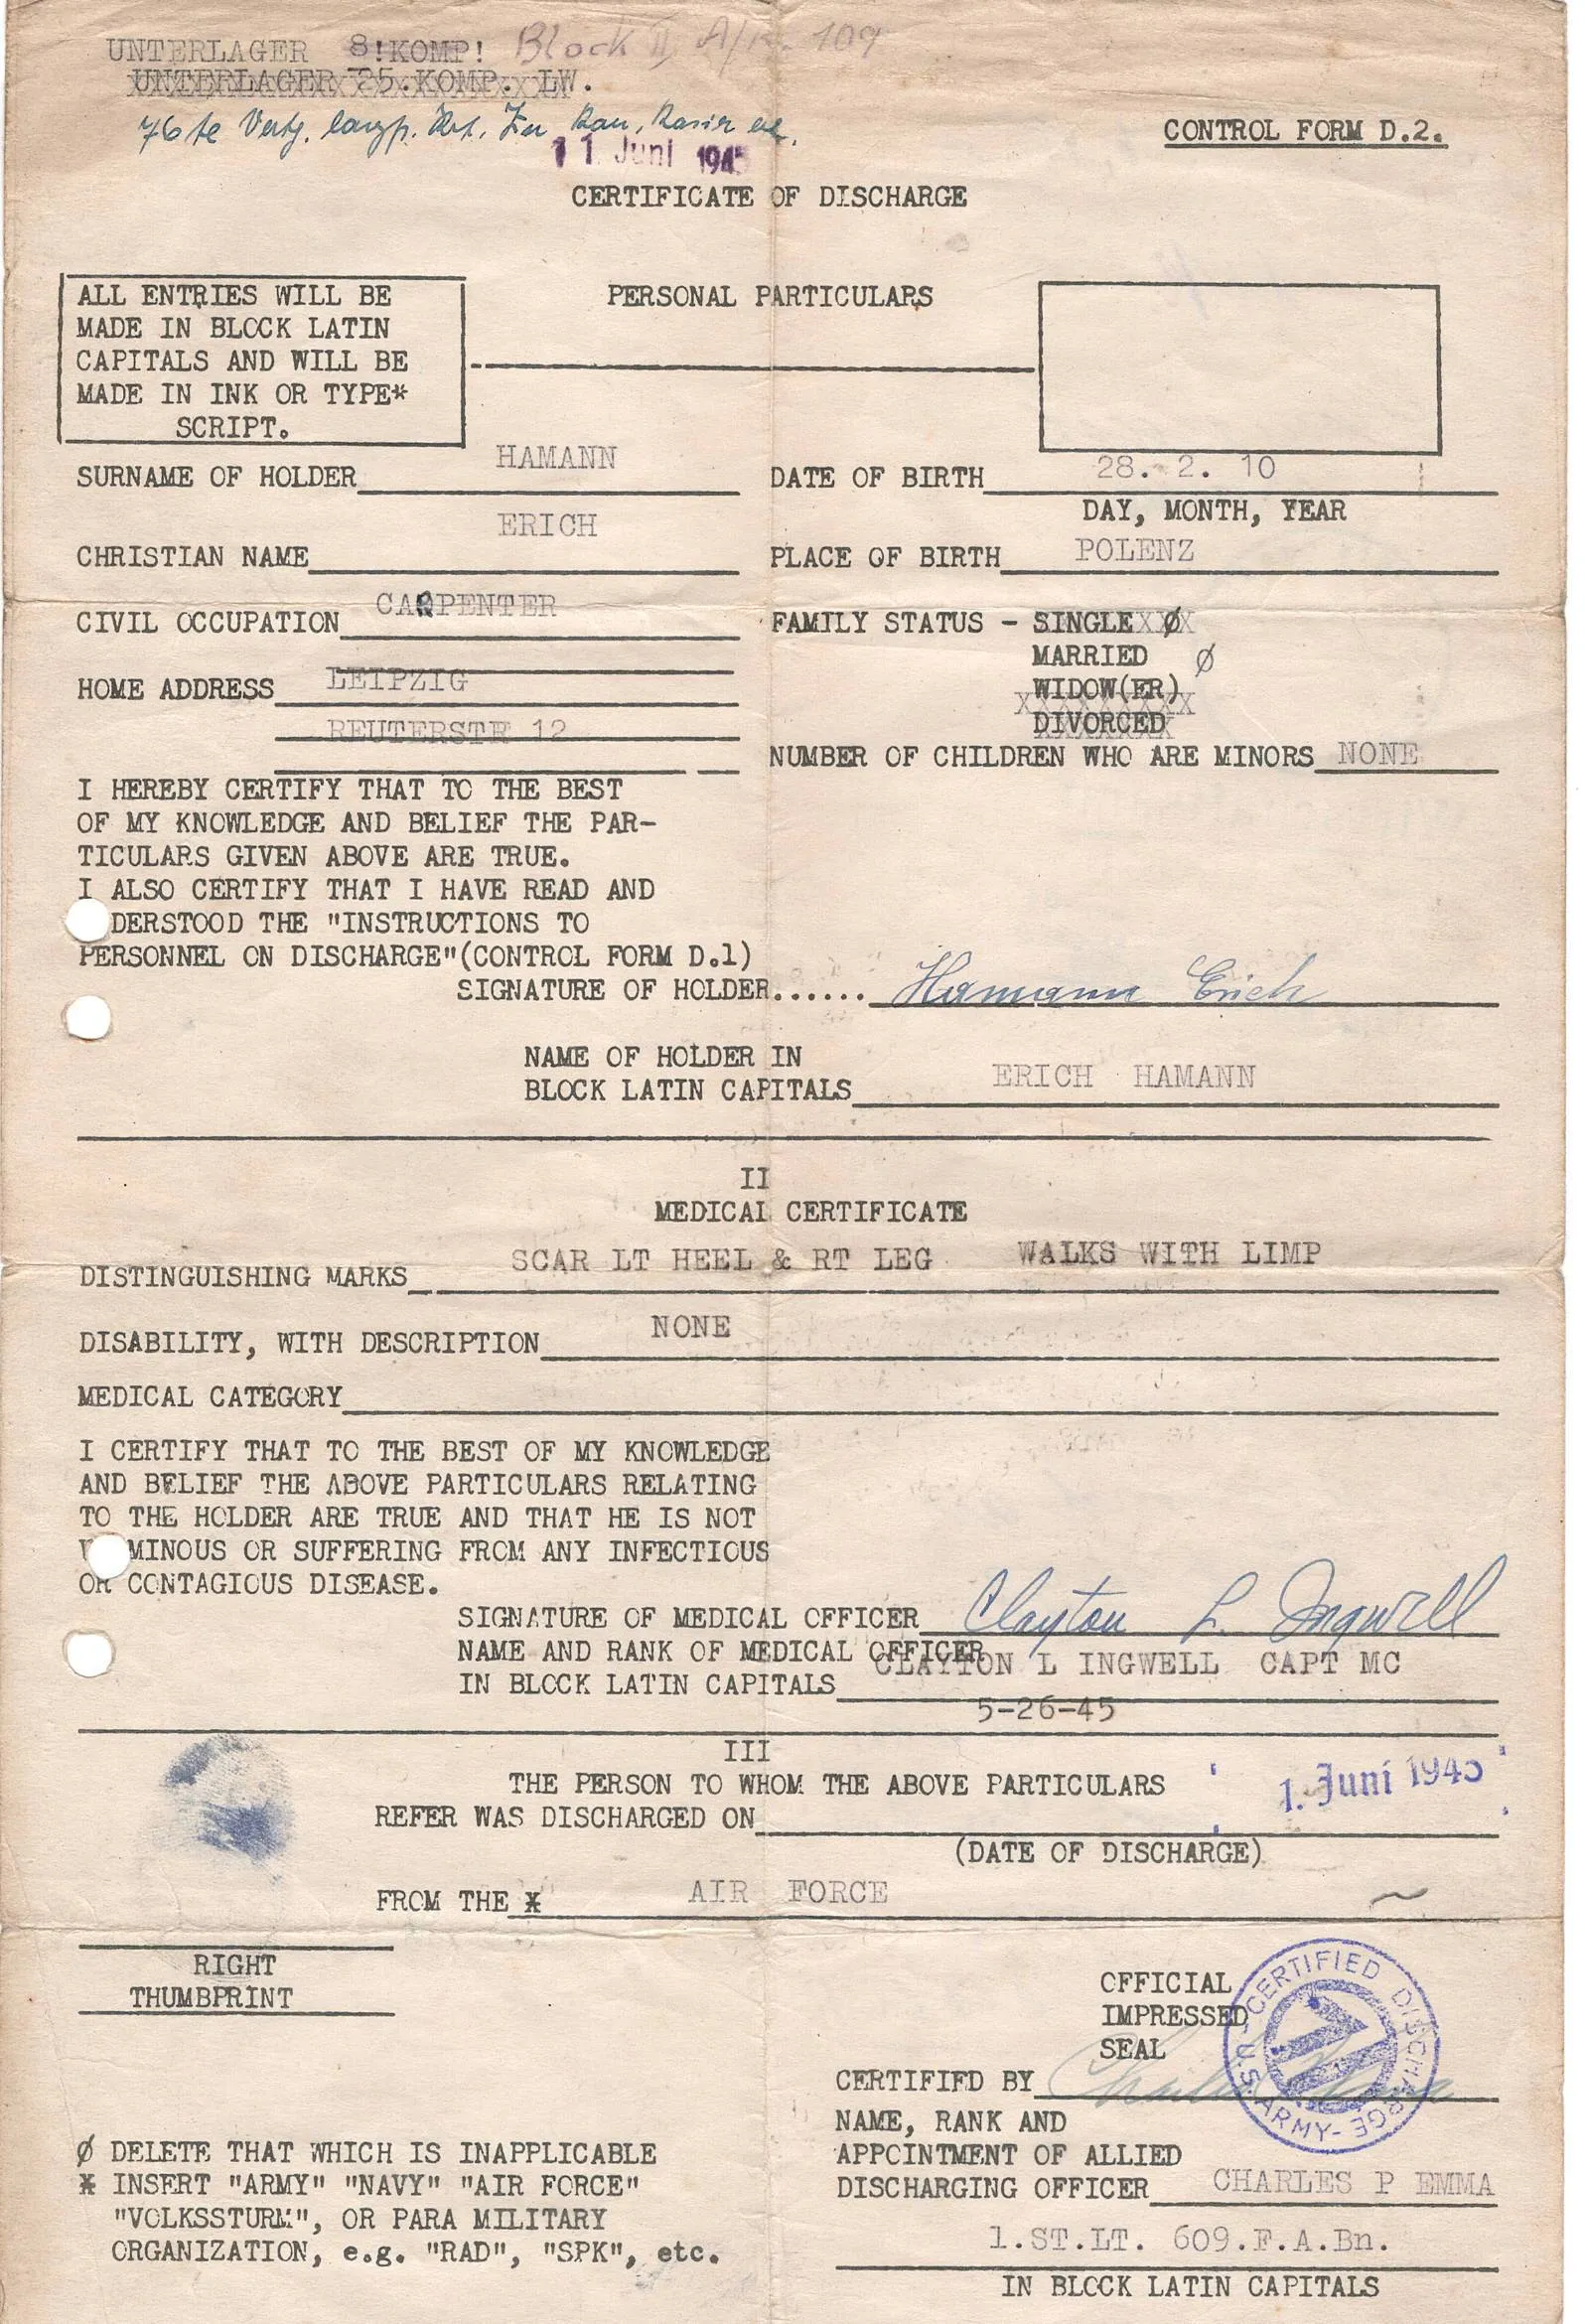 UNTERLAGER 8!KOMP! Block II A/K. 109
UNTERLAGER 25.KOMP. LW.
76te
11. Juni 1945
CONTROL FORM D.2.
CERTIFICATE OF DISCHARGE
ALL ENTRIES WILL BE
MADE IN BLOCK LATIN
CAPITALS AND WILL BE
MADE IN INK OR TYPE*
SCRIPT.
PERSONAL PARTICULARS
SURNAME OF HOLDER HAMANN
DATE OF BIRTH 28. 2. 10
DAY, MONTH, YEAR
CHRISTIAN NAME ERICH
PLACE OF BIRTH POLENZ
CIVIL OCCUPATION CARPENTER
FAMILY STATUS - SINGLE XØX
MARRIED Ø
WIDOW(ER)
DIVORCED
HOME ADDRESS LEIPZIG
REUTERSTR 12
NUMBER OF CHILDREN WHO ARE MINORS NONE
I HEREBY CERTIFY THAT TO THE BEST
OF MY KNOWLEDGE AND BELIEF THE PAR-
TICULARS GIVEN ABOVE ARE TRUE.
I ALSO CERTIFY THAT I HAVE READ AND
DERSTOOD THE "INSTRUCTIONS TO
PERSONNEL ON DISCHARGE"(CONTROL FORM D.1)
SIGNATURE OF HOLDER...... Hamann Erich
NAME OF HOLDER IN
BLOCK LATIN CAPITALS ERICH HAMANN
II
MEDICAL CERTIFICATE
DISTINGUISHING MARKS SCAR LT HEEL & RT LEG WALKS WITH LIMP
DISABILITY, WITH DESCRIPTION NONE
MEDICAL CATEGORY
I CERTIFY THAT TO THE BEST OF MY KNOWLEDGE
AND BELIEF THE ABOVE PARTICULARS RELATING
TO THE HOLDER ARE TRUE AND THAT HE IS NOT
V MINOUS OR SUFFERING FROM ANY INFECTIOUS
OR CONTAGIOUS DISEASE.
SIGNATURE OF MEDICAL OFFICER Clayton L. Ingwell
NAME AND RANK OF MEDICAL OFFICER
IN BLOCK LATIN CAPITALS CLAYTON L INGWELL CAPT MC
5-26-45
III
THE PERSON TO WHOM THE ABOVE PARTICULARS
REFER WAS DISCHARGED ON 1. Juni 1945
(DATE OF DISCHARGE)
FROM THE * AIR FORCE
RIGHT
THUMBPRINT
OFFICIAL
IMPRESSED
SEAL
U.S. ARMY - CERTIFIED DISCHARGE -
CERTIFIED BY
NAME, RANK AND
APPOINTMENT OF ALLIED
DISCHARGING OFFICER CHARLES P EMMA
1.ST.LT. 609.F.A.Bn.
IN BLOCK LATIN CAPITALS
Ø DELETE THAT WHICH IS INAPPLICABLE
* INSERT "ARMY" "NAVY" "AIR FORCE"
"VOLKSSTURM", OR PARA MILITARY
ORGANIZATION, e.g. "RAD", "SPK", etc.